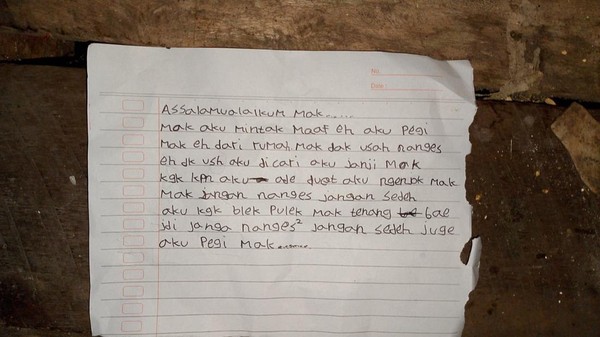 No.
Date :
Assalamualaikum Mak......
Mak aku mintak maaf eh aku Pegi
Mak eh dari rumah Mak dak usah nanges
eh dk ush aku dicari aku janji Mak
kgk kpn aku ade duet aku ngenok Mak
Mak jangan nanges jangan sedeh
aku kgk blek Pulek Mak tenang bae
jdi janga nanges² jangan sedeh juge
aku Pegi Mak.......